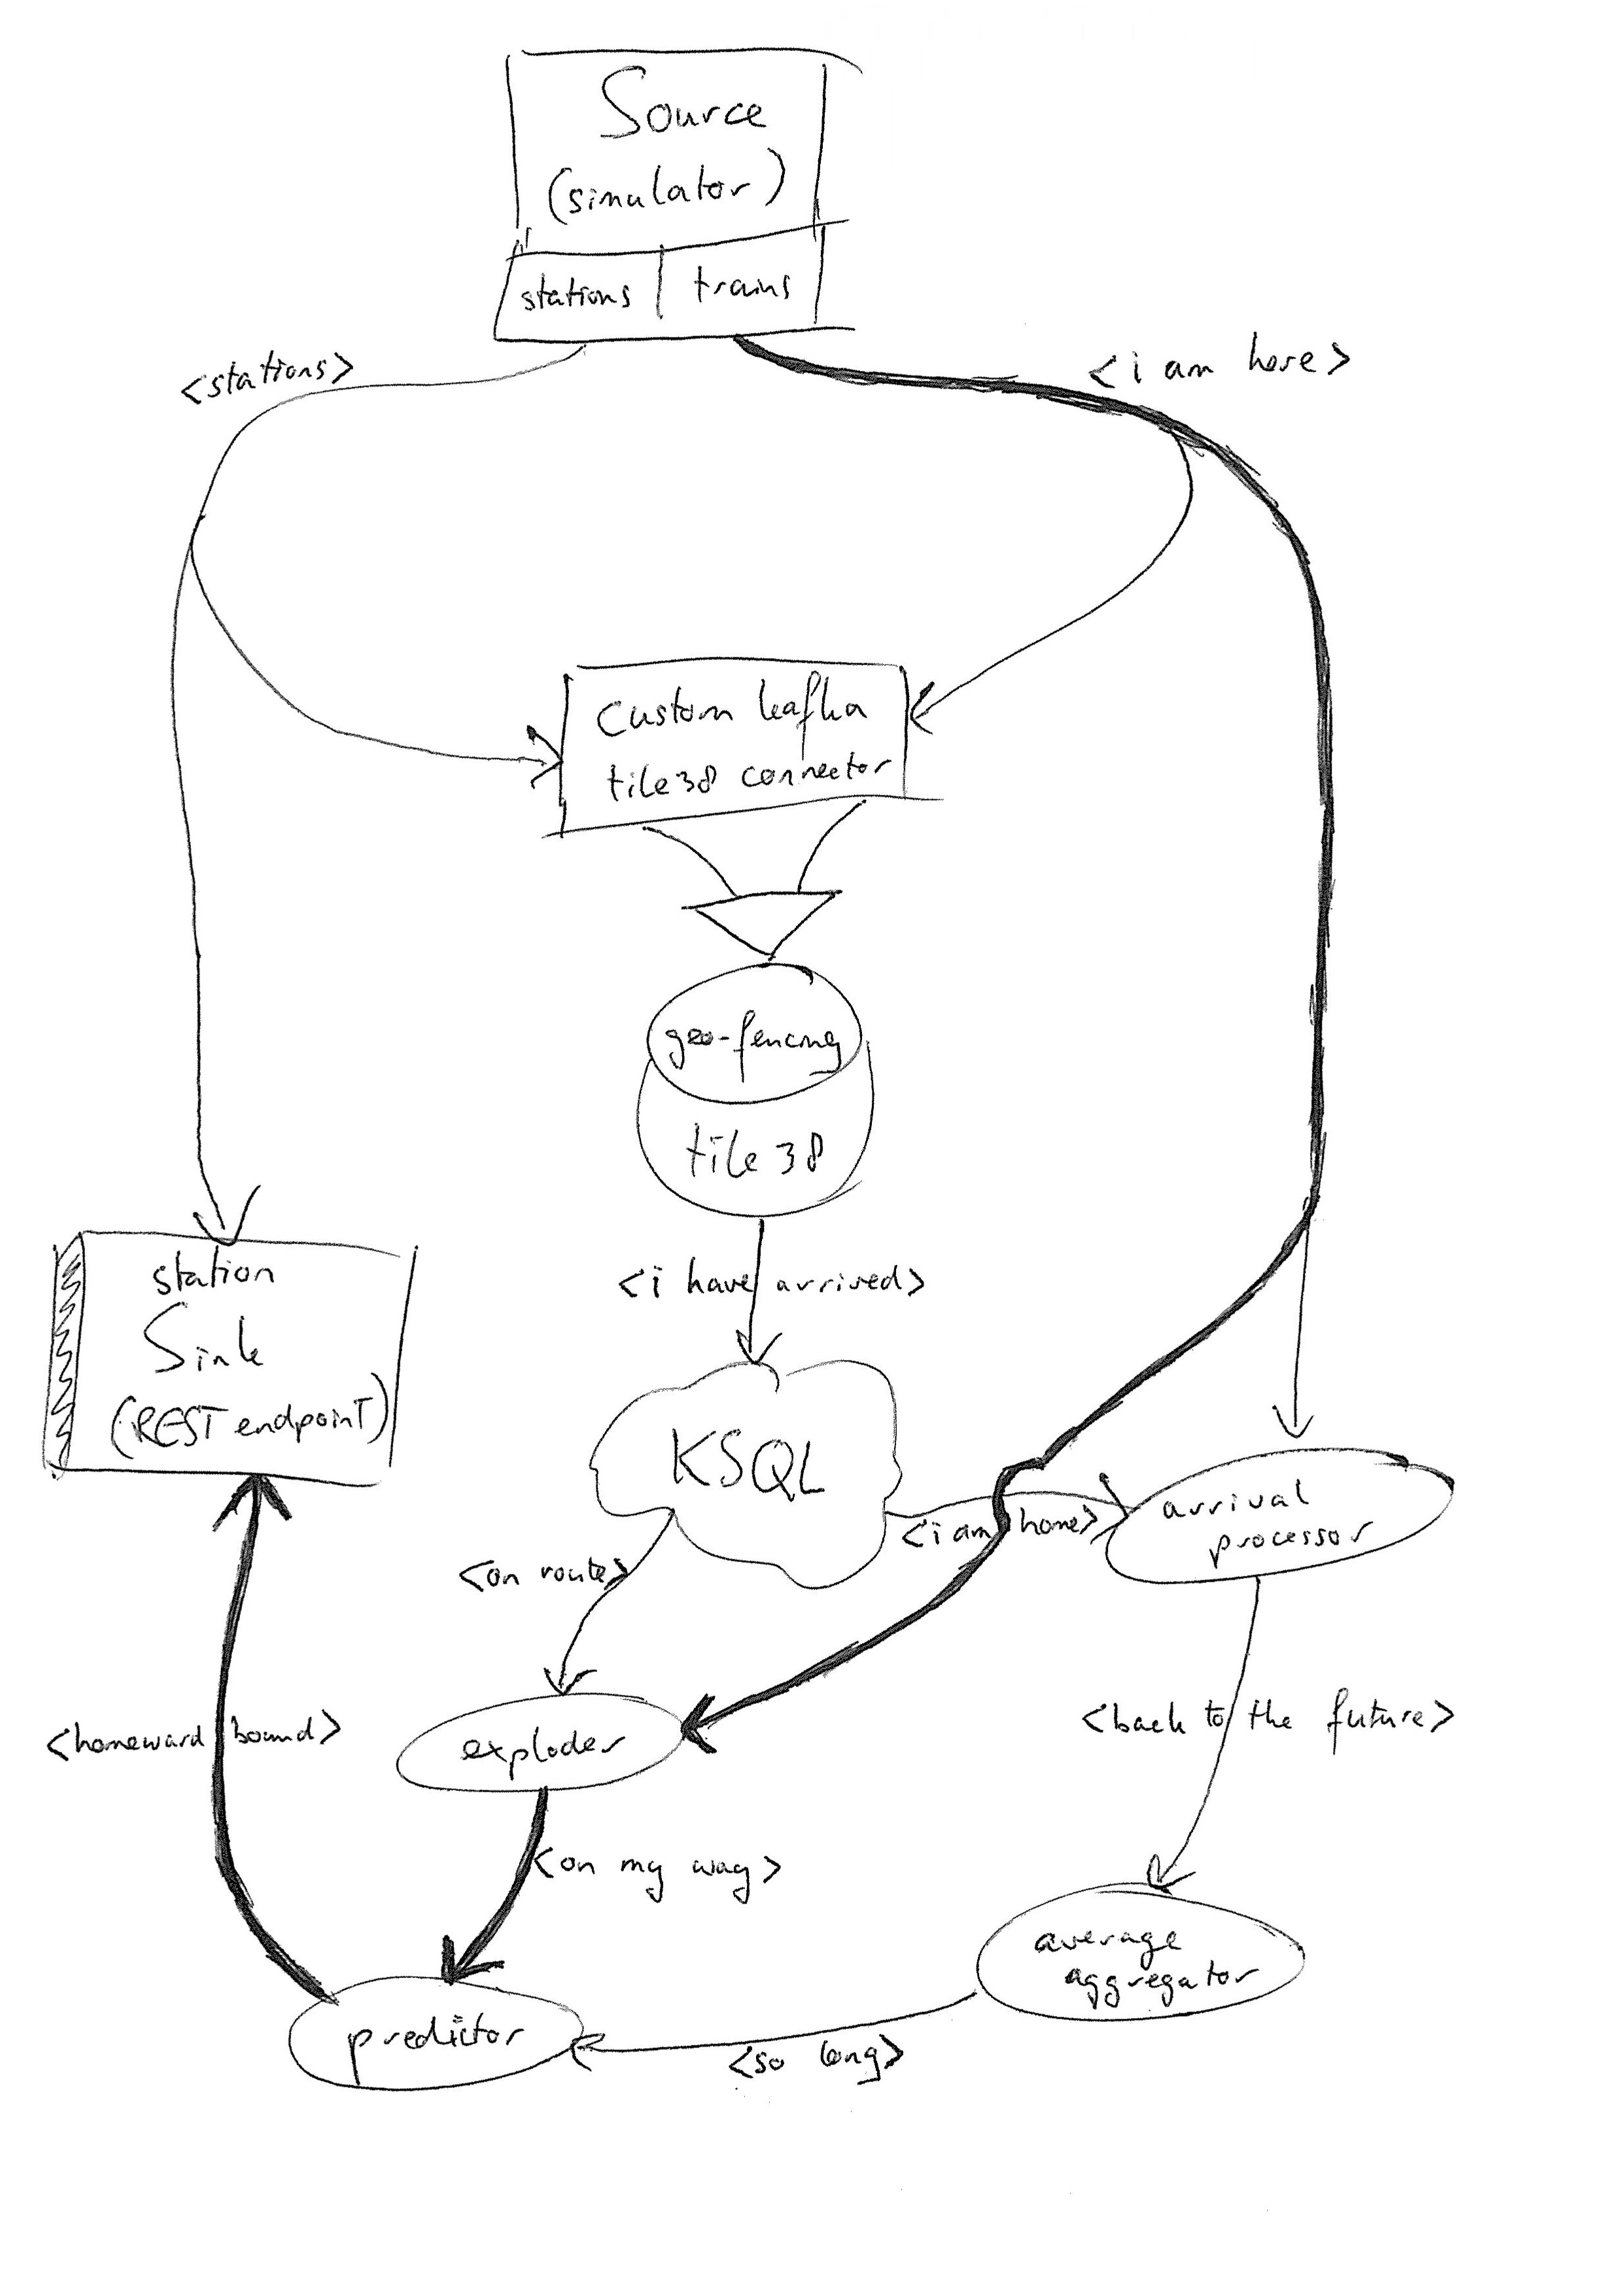 Source
(simulator)
stations
trains
<stations>
<i am here>
custom kafka
tile38 connector
geo-fencing
tile 38
<i have arrived>
station
Sink
(REST endpoint)
KSQL
<i am home>
arrival
processor
<on route>
<homeward bound>
exploder
<back to the future>
<on my way>
average
aggregator
predictor
<so long>